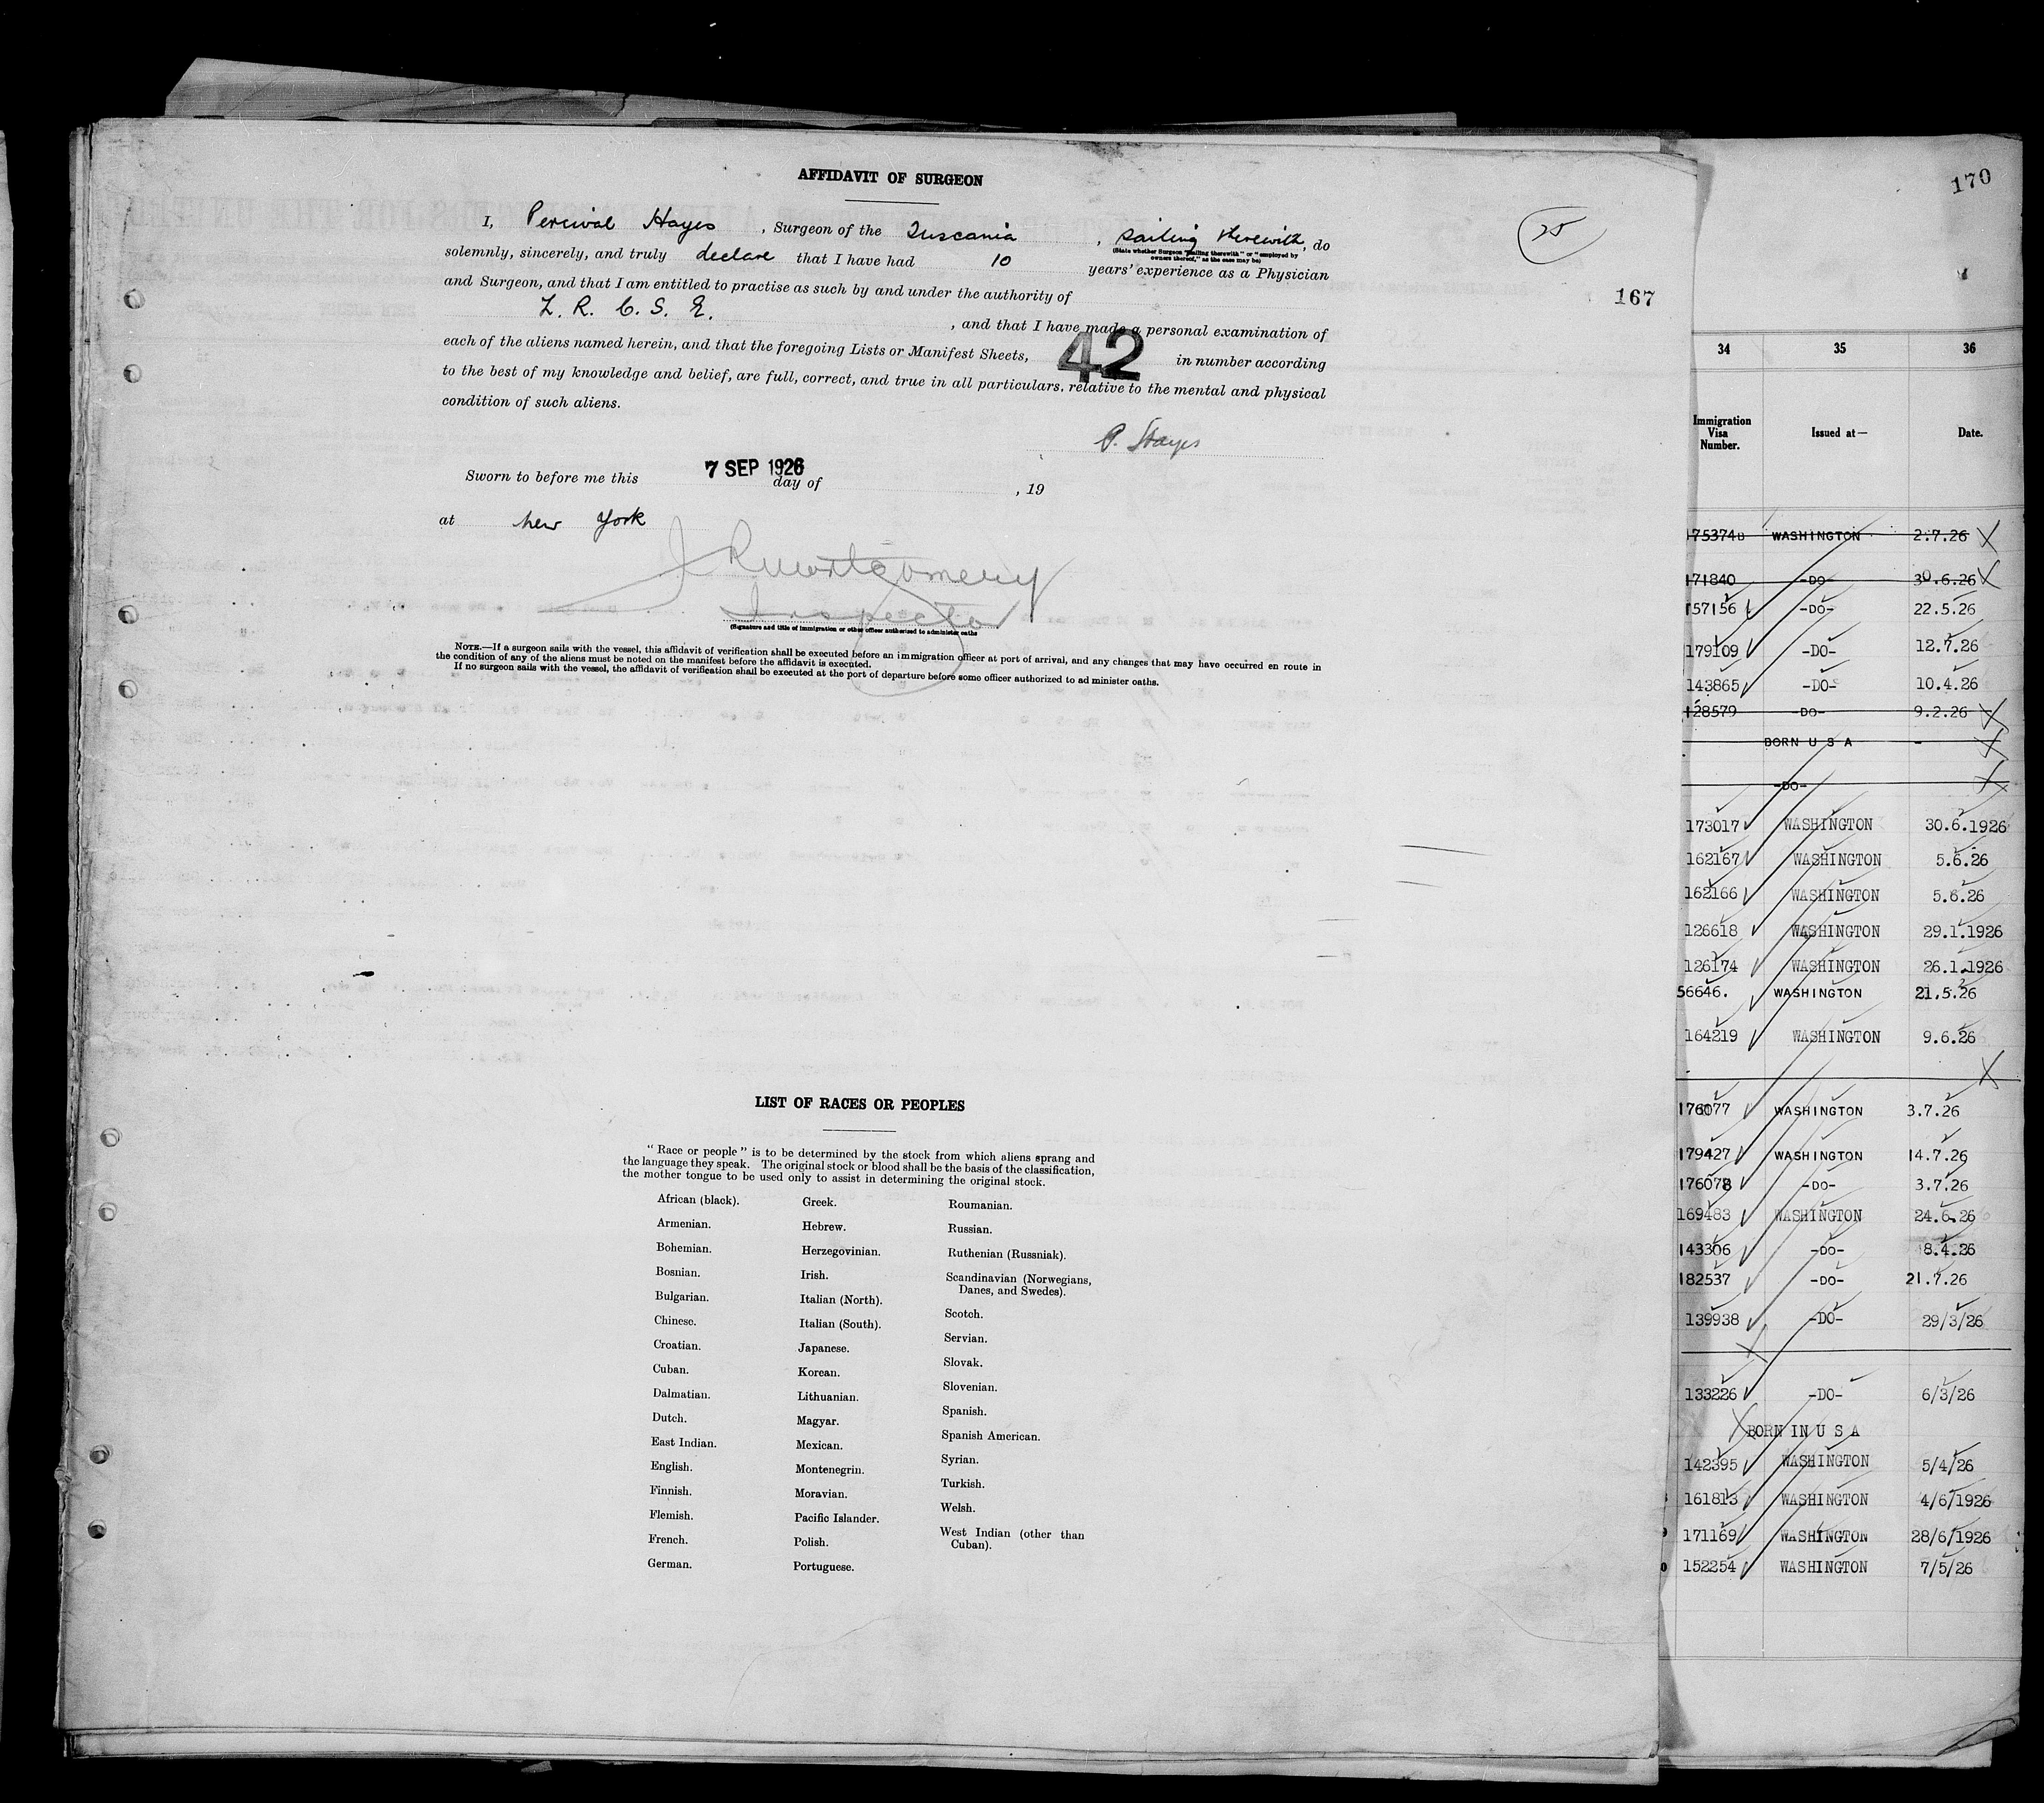 AFFIDAVIT OF SURGEON
I, Percival Hayes, Surgeon of the Tuscania, sailing therewith, do
(State whether Surgeon "sailing therewith" or "employed by
owners thereof," as the case may be)
solemnly, sincerely, and truly declare that I have had 10 years' experience as a Physician
and Surgeon, and that I am entitled to practise as such by and under the authority of
L. R. C. S. E. , and that I have made a personal examination of
each of the aliens named herein, and that the foregoing Lists or Manifest Sheets, 42 in number according
to the best of my knowledge and belief, are full, correct, and true in all particulars, relative to the mental and physical
condition of such aliens.
P. Hayes
Sworn to before me this 7 SEP 1926 day of , 19
at New York
J R Montgomery
Inspector
(Signature and title of immigration or other officer authorized to administer oaths
NOTE.—If a surgeon sails with the vessel, this affidavit of verification shall be executed before an immigration officer at port of arrival, and any changes that may have occurred en route in
the condition of any of the aliens must be noted on the manifest before the affidavit is executed.
If no surgeon sails with the vessel, the affidavit of verification shall be executed at the port of departure before some officer authorized to ad minister oaths.
25
167
LIST OF RACES OR PEOPLES
"Race or people" is to be determined by the stock from which aliens sprang and
the language they speak. The original stock or blood shall be the basis of the classification,
the mother tongue to be used only to assist in determining the original stock.
African (black).
Armenian.
Bohemian.
Bosnian.
Bulgarian.
Chinese.
Croatian.
Cuban.
Dalmatian.
Dutch.
East Indian.
English.
Finnish.
Flemish.
French.
German.
Greek.
Hebrew.
Herzegovinian.
Irish.
Italian (North).
Italian (South).
Japanese.
Korean.
Lithuanian.
Magyar.
Mexican.
Montenegrin.
Moravian.
Pacific Islander.
Polish.
Portuguese.
Roumanian.
Russian.
Ruthenian (Russniak).
Scandinavian (Norwegians,
Danes, and Swedes).
Scotch.
Servian.
Slovak.
Slovenian.
Spanish.
Spanish American.
Syrian.
Turkish.
Welsh.
West Indian (other than
Cuban).
170
34 35 36
Immigration Visa Number. Issued at— Date.
WASHINGTON 2.7.26
171840 -DO- 30.6.26
157156 -DO- 22.5.26
179109 -DO- 12.7.26
143865 -DO- 10.4.26
128579 -DO- 9.2.26
BORN U S A -
-DO-
173017 WASHINGTON 30.6.1926
162167 WASHINGTON 5.6.26
162166 WASHINGTON 5.6.26
126618 WASHINGTON 29.1.1926
126174 WASHINGTON 26.1.1926
56646. WASHINGTON 21.5.26
164219 WASHINGTON 9.6.26
176077 WASHINGTON 3.7.26
179427 WASHINGTON 14.7.26
176078 -DO- 3.7.26
169483 WASHINGTON 24.6.26
143306 -DO- 8.4.26
182537 -DO- 21.7.26
139938 -DO- 29/3/26
133226 -DO- 6/3/26
BORN IN U S A
142395 WASHINGTON 5/4/26
161813 WASHINGTON 4/6/1926
171169 WASHINGTON 28/6/1926
152254 WASHINGTON 7/5/26